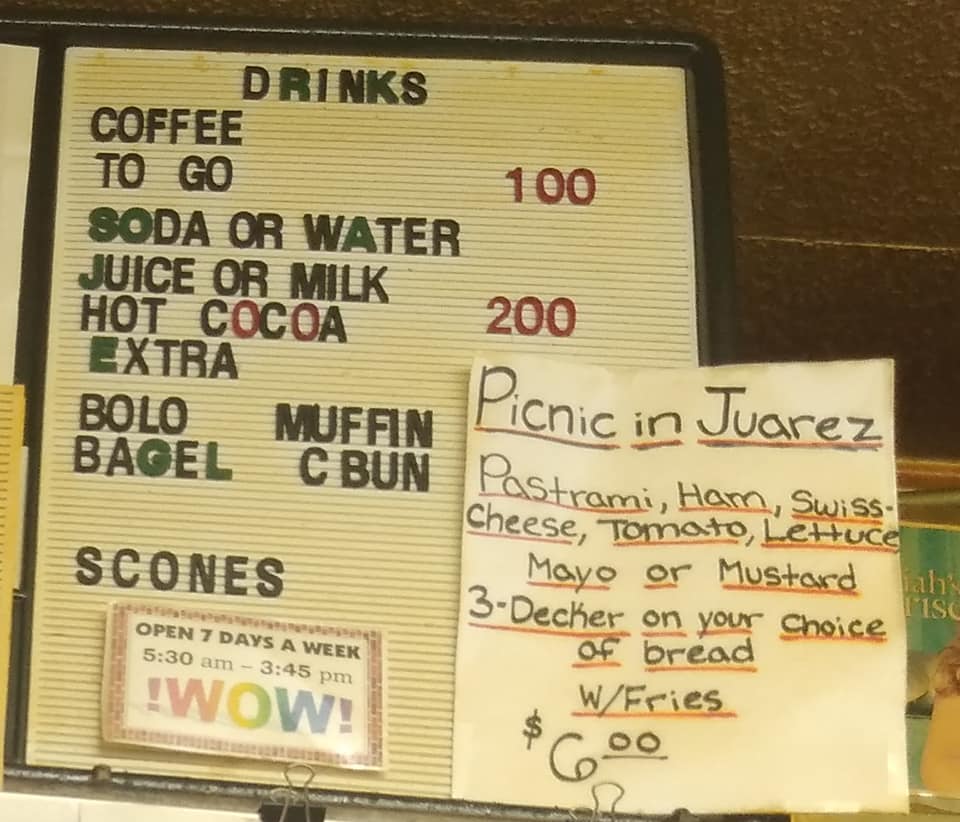 DRINKS
COFFEE
TO GO 100
SODA OR WATER
JUICE OR MILK
HOT COCOA 200
EXTRA
BOLO MUFFIN
BAGEL C BUN
SCONES
OPEN 7 DAYS A WEEK
5:30 am – 3:45 pm
!WOW!
Picnic in Juarez
Pastrami, Ham, Swiss-
Cheese, Tomato, Lettuce
Mayo or Mustard
3-Decker on your choice
of bread
W/Fries
$6.00